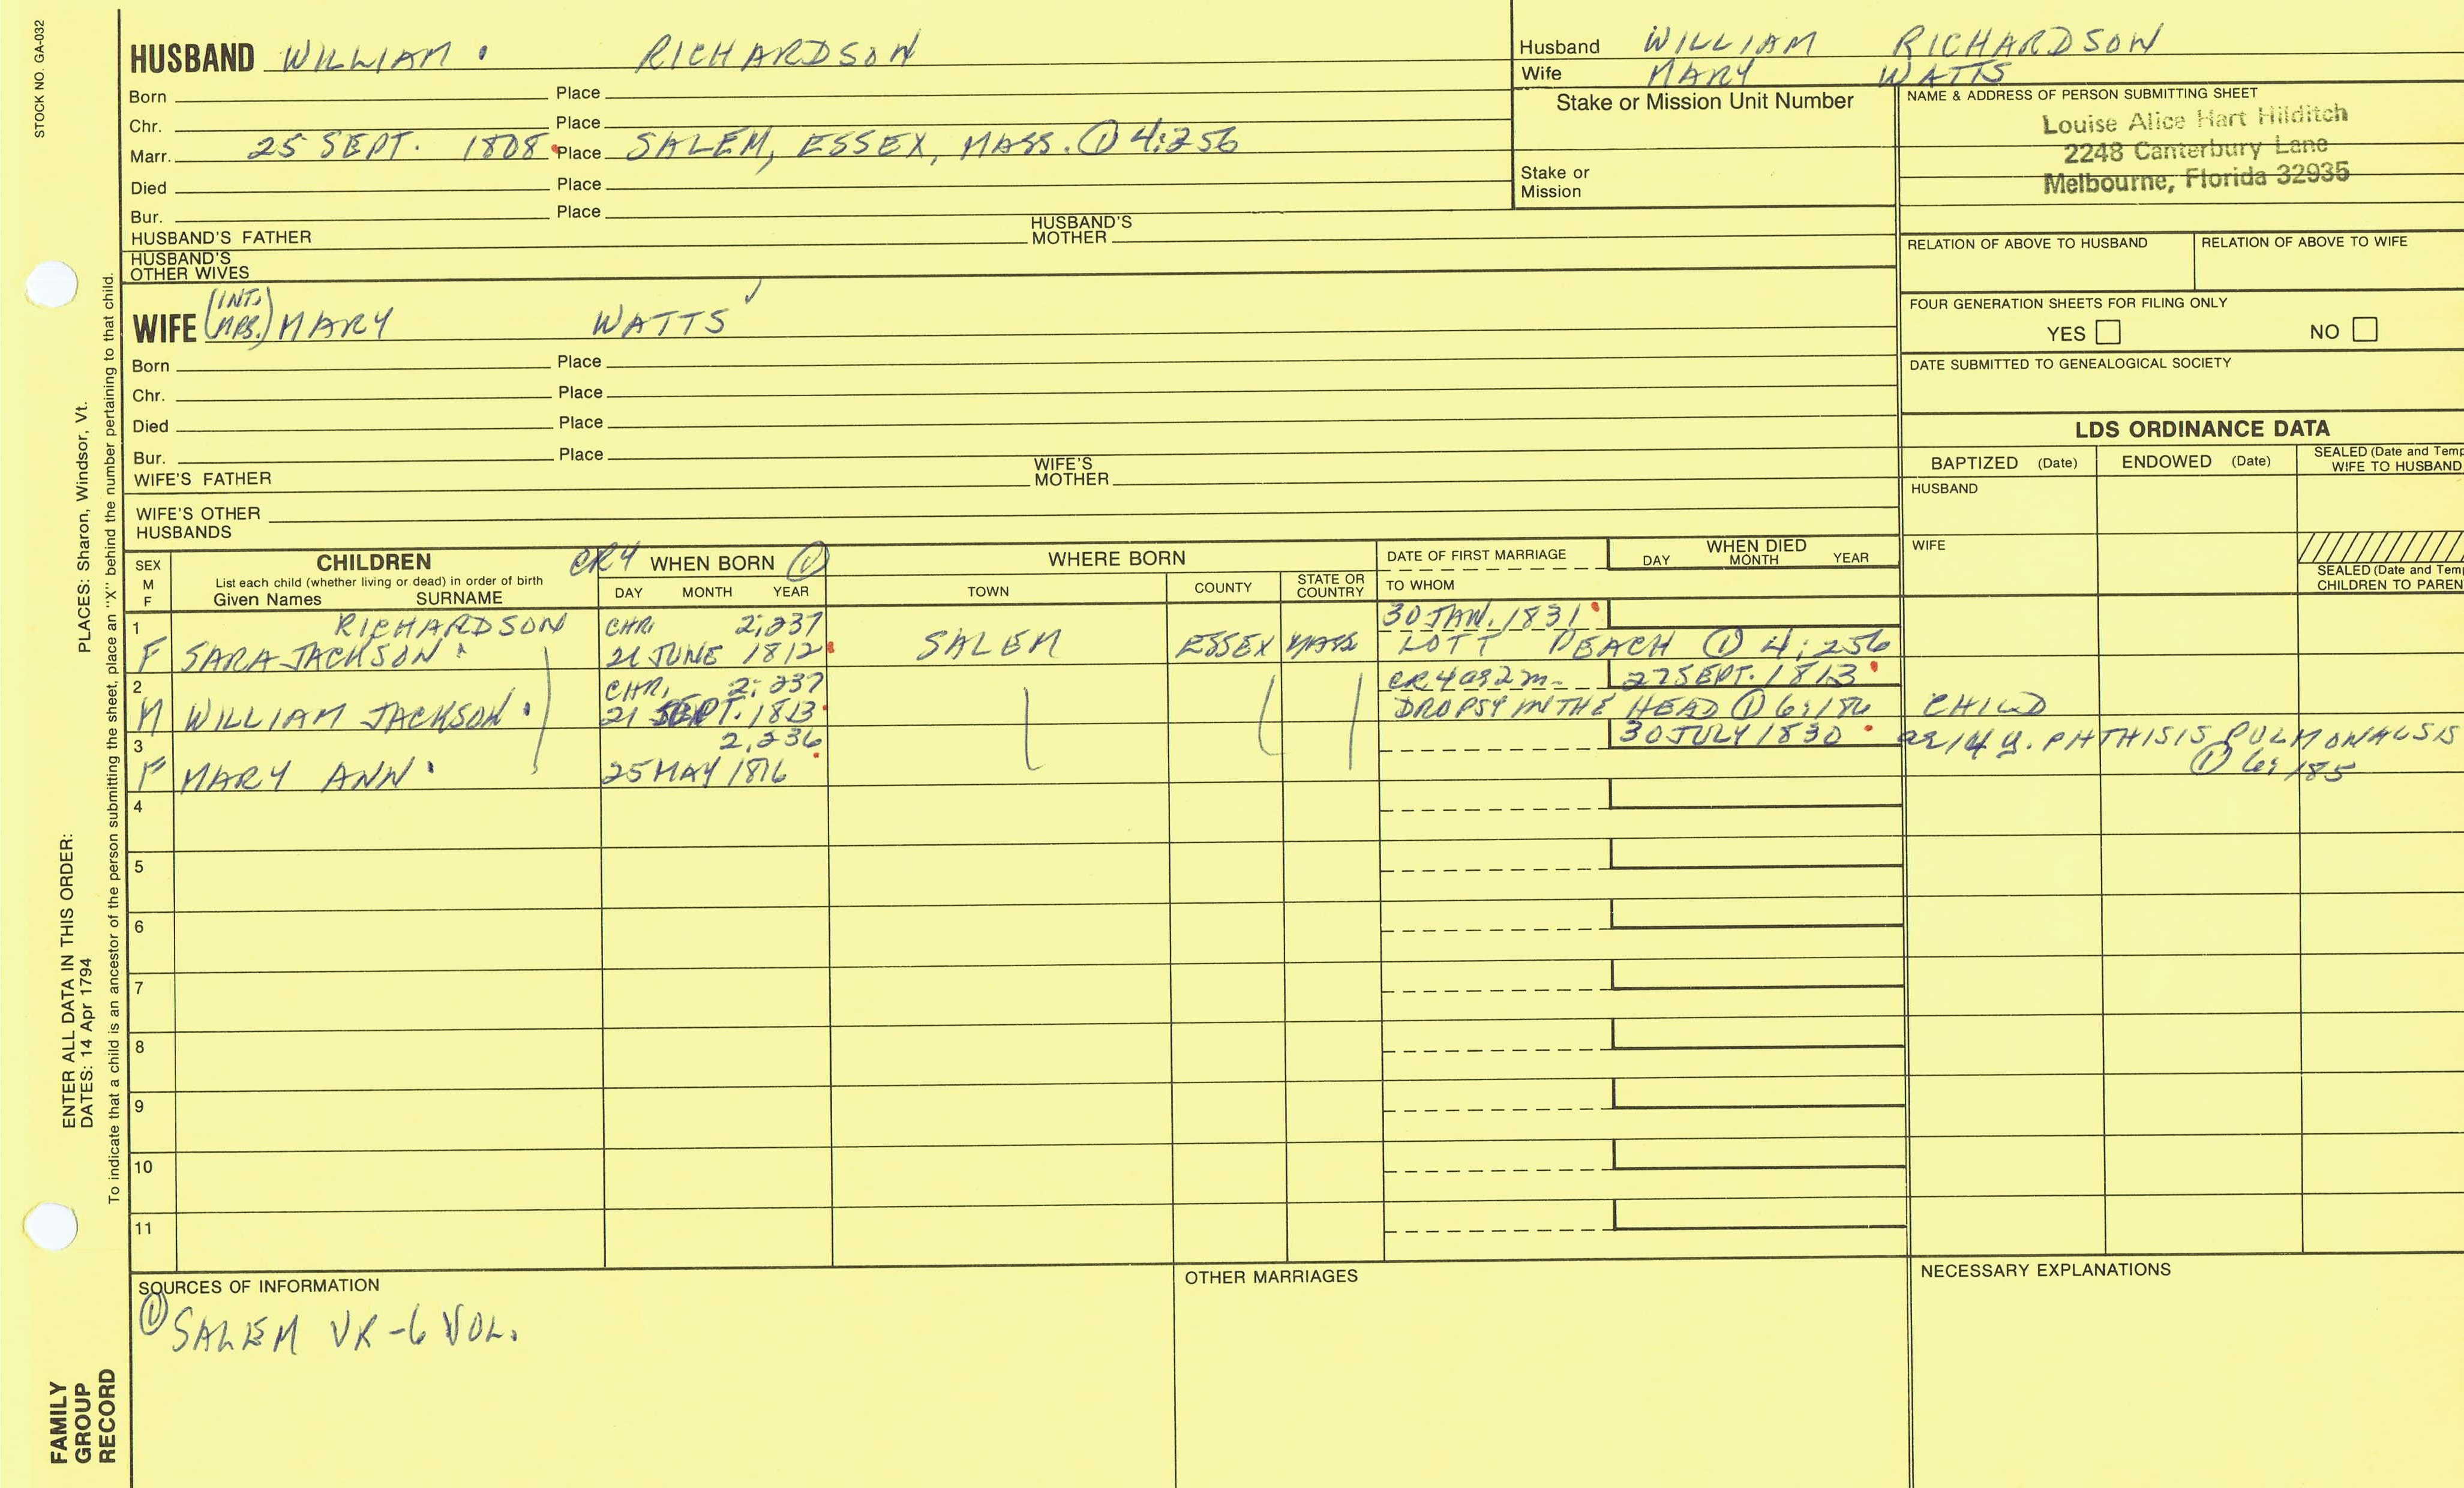 STOCK NO. GA-032
HUSBAND WILLIAM RICHARDSON
Born Place
Chr. Place
Marr. 25 SEPT. 1808 Place SALEM, ESSEX, MASS. ① 4:256
Died Place
Bur. Place
HUSBAND'S FATHER HUSBAND'S MOTHER
HUSBAND'S OTHER WIVES
Husband WILLIAM RICHARDSON
Wife MARY WATTS
Stake or Mission Unit Number
Stake or Mission
NAME & ADDRESS OF PERSON SUBMITTING SHEET
Louise Alice Hart Hilditch
2248 Canterbury Lane
Melbourne, Florida 32935
RELATION OF ABOVE TO HUSBAND RELATION OF ABOVE TO WIFE
FOUR GENERATION SHEETS FOR FILING ONLY
YES NO
DATE SUBMITTED TO GENEALOGICAL SOCIETY
WIFE (INT. MRS.) MARY WATTS
Born Place
Chr. Place
Died Place
Bur. Place
WIFE'S FATHER WIFE'S MOTHER
WIFE'S OTHER HUSBANDS
LDS ORDINANCE DATA
BAPTIZED (Date) ENDOWED (Date) SEALED (Date and Temp
WIFE TO HUSBAND
HUSBAND
WIFE
SEALED (Date and Temp
CHILDREN TO PAREN
SEX
M
F
CHILDREN
List each child (whether living or dead) in order of birth
Given Names SURNAME
CR4 WHEN BORN ①
DAY MONTH YEAR
WHERE BORN
TOWN COUNTY STATE OR COUNTRY
DATE OF FIRST MARRIAGE
TO WHOM
WHEN DIED
DAY MONTH YEAR
1 RICHARDSON CHR. 2:237 30 JAN. 1831
F SARA JACKSON 21 JUNE 1812 SALEM ESSEX MASS LOTT PEACH ① 4:256
2 CHR. 2:237 CR4 ae 2 m. 27 SEPT. 1813
M WILLIAM JACKSON 21 SEPT. 1813 DROPSY IN THE HEAD ① 6:186 CHILD
3 2:236 30 JULY 1830 ae 14 y. PHTHISIS PULMONALSIS
F MARY ANN 25 MAY 1816 ① 6:185
4
5
6
7
8
9
10
11
SOURCES OF INFORMATION
① SALEM VR-6 VOL.
OTHER MARRIAGES
NECESSARY EXPLANATIONS
ENTER ALL DATA IN THIS ORDER:
DATES: 14 Apr 1794 PLACES: Sharon, Windsor, Vt.
To indicate that a child is an ancestor of the person submitting the sheet, place an "X" behind the number pertaining to that child.
FAMILY
GROUP
RECORD